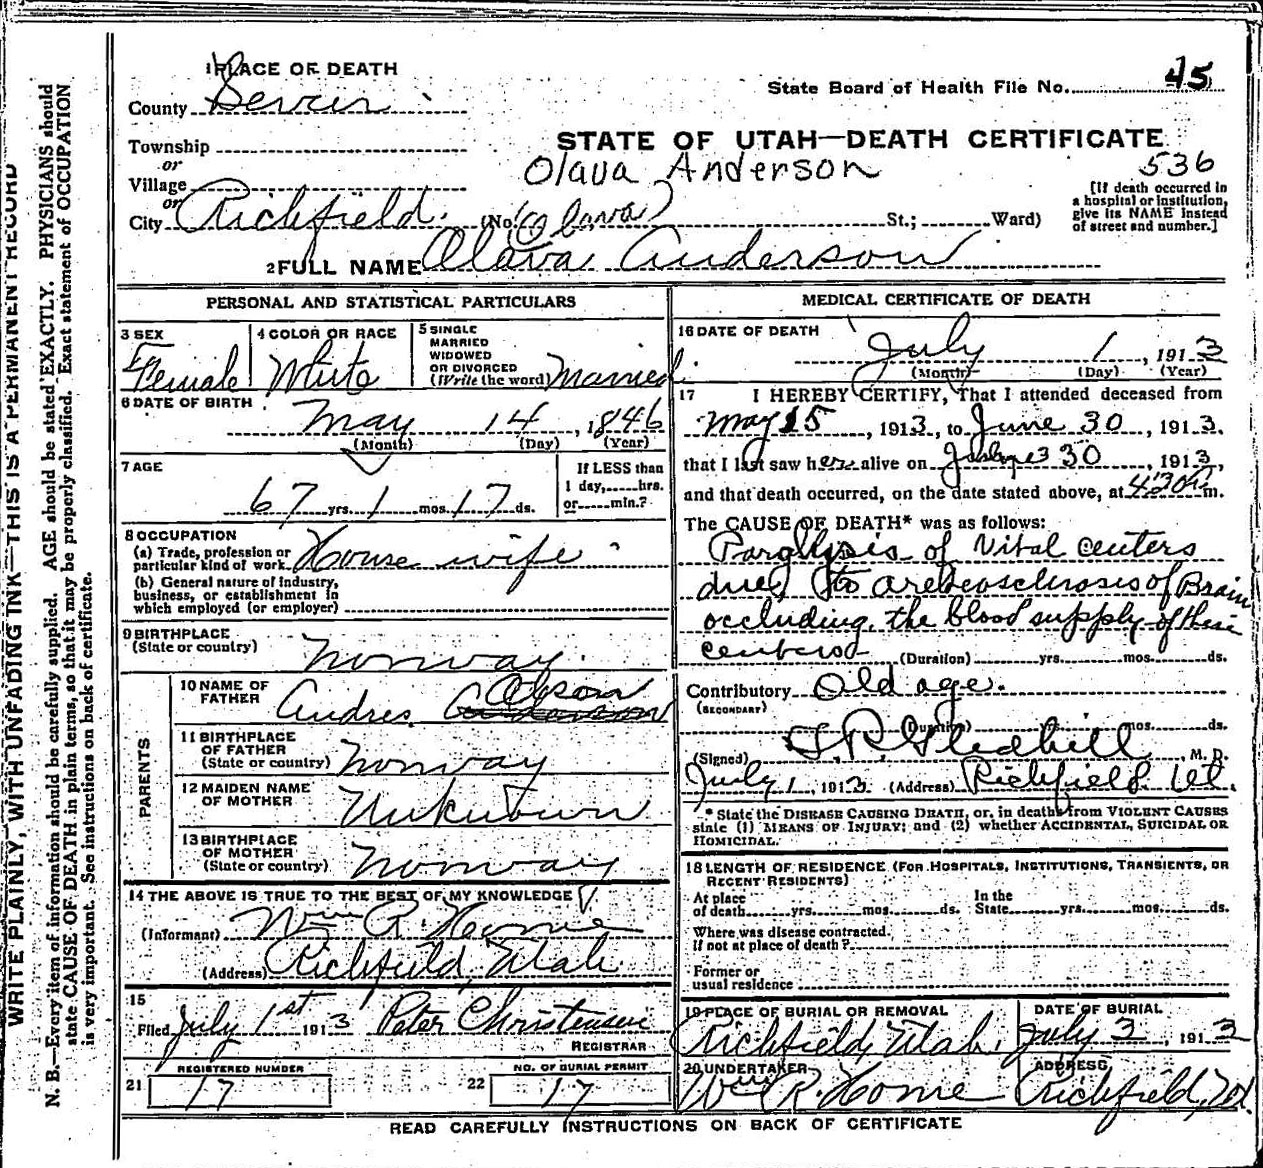 WRITE PLAINLY, WITH UNFADING INK—THIS IS A PERMANENT RECORD
N. B.—Every item of information should be carefully supplied. AGE should be stated EXACTLY. PHYSICIANS should
state CAUSE OF DEATH in plain terms, so that it may be properly classified. Exact statement of OCCUPATION
is very important. See instructions on back of certificate.
1 PLACE OF DEATH
State Board of Health File No. 45
County Sevier
STATE OF UTAH—DEATH CERTIFICATE
Township
Olava Anderson
536
or
Village
or
City Richfield (No. (Olava) St.; Ward)
[If death occurred in
a hospital or institution,
give its NAME instead
of street and number.]
2 FULL NAME Olava Anderson
PERSONAL AND STATISTICAL PARTICULARS
3 SEX
Female
4 COLOR OR RACE
White
5 SINGLE
MARRIED
WIDOWED
OR DIVORCED
(Write the word) Married
6 DATE OF BIRTH
May 14, 1846
(Month) (Day) (Year)
7 AGE
67 yrs. 1 mos. 17 ds.
If LESS than
1 day, hrs.
or min.?
8 OCCUPATION
(a) Trade, profession or
particular kind of work House wife
(b) General nature of industry,
business, or establishment in
which employed (or employer)
9 BIRTHPLACE
(State or country)
Norway
PARENTS
10 NAME OF
FATHER
Andres Olson
11 BIRTHPLACE
OF FATHER
(State or country) Norway
12 MAIDEN NAME
OF MOTHER
Unknown
13 BIRTHPLACE
OF MOTHER
(State or country) Norway
14 THE ABOVE IS TRUE TO THE BEST OF MY KNOWLEDGE
(Informant) Wm R. Horne
(Address) Richfield, Utah
15
Filed July 1st 1913 Peter Christensen
REGISTRAR
REGISTERED NUMBER
21 17
NO. OF BURIAL PERMIT
22 17
MEDICAL CERTIFICATE OF DEATH
16 DATE OF DEATH
July 1, 1913
(Month) (Day) (Year)
17 I HEREBY CERTIFY, That I attended deceased from
May 15, 1913, to June 30, 1913.
that I last saw her alive on June 30, 1913,
and that death occurred, on the date stated above, at 4:30 m.
The CAUSE OF DEATH* was as follows:
Paralysis of Vital centers
due to arteriosclerosis of Brain
occluding the blood supply of these
centers
(Duration) yrs. mos. ds.
Contributory Old age.
(SECONDARY)
(Duration) yrs. mos. ds.
(Signed) T. R. Gledhill, M. D.
July 1, 1913. (Address) Richfield Ut.
* State the DISEASE CAUSING DEATH, or, in deaths from VIOLENT CAUSES
state (1) MEANS OF INJURY; and (2) whether ACCIDENTAL, SUICIDAL OR
HOMICIDAL.
18 LENGTH OF RESIDENCE (FOR HOSPITALS, INSTITUTIONS, TRANSIENTS, OR
RECENT RESIDENTS)
At place
of death yrs. mos. ds.
In the
State yrs. mos. ds.
Where was disease contracted,
if not at place of death?
Former or
usual residence
19 PLACE OF BURIAL OR REMOVAL
Richfield, Utah.
DATE OF BURIAL
July 3, 1913
20 UNDERTAKER
Wm R. Horne
ADDRESS
Richfield, Ut.
READ CAREFULLY INSTRUCTIONS ON BACK OF CERTIFICATE